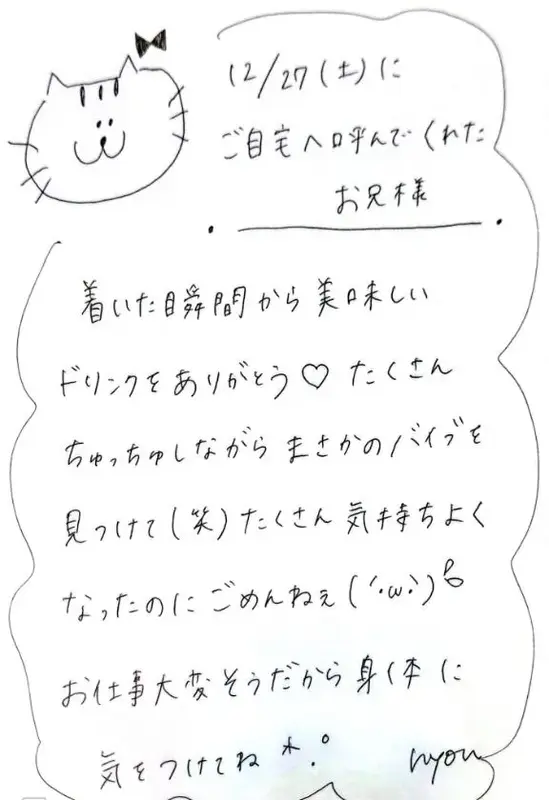 12/27(土)に
ご自宅へ呼んでくれた
お兄様
着いた瞬間から美味しい
ドリンクをありがとう♡たくさん
ちゅっちゅしながらまさかのバイブを
見つけて(笑)たくさん気持ちよく
なったのにごめんねぇ(´･ω･`)
お仕事大変そうだから身体に
気をつけてね *.°
nyon